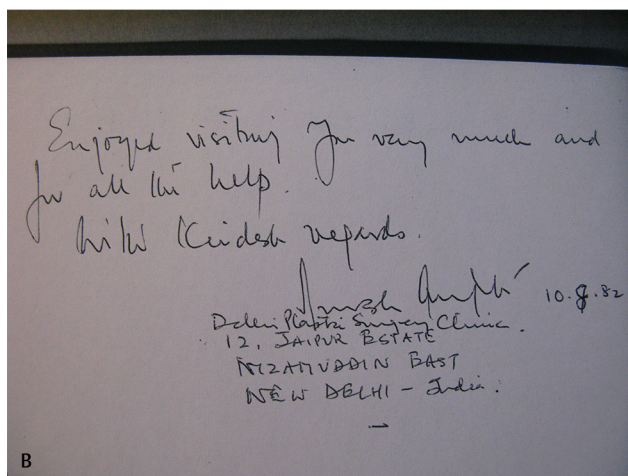 Enjoyed visiting you very much and
for all the help.
With Kindest regards.
Gupta 10.8.82
Delhi Plastic Surgery Clinic.
12, JAIPUR ESTATE
NIZAMUDDIN EAST
NEW DELHI - India.
B